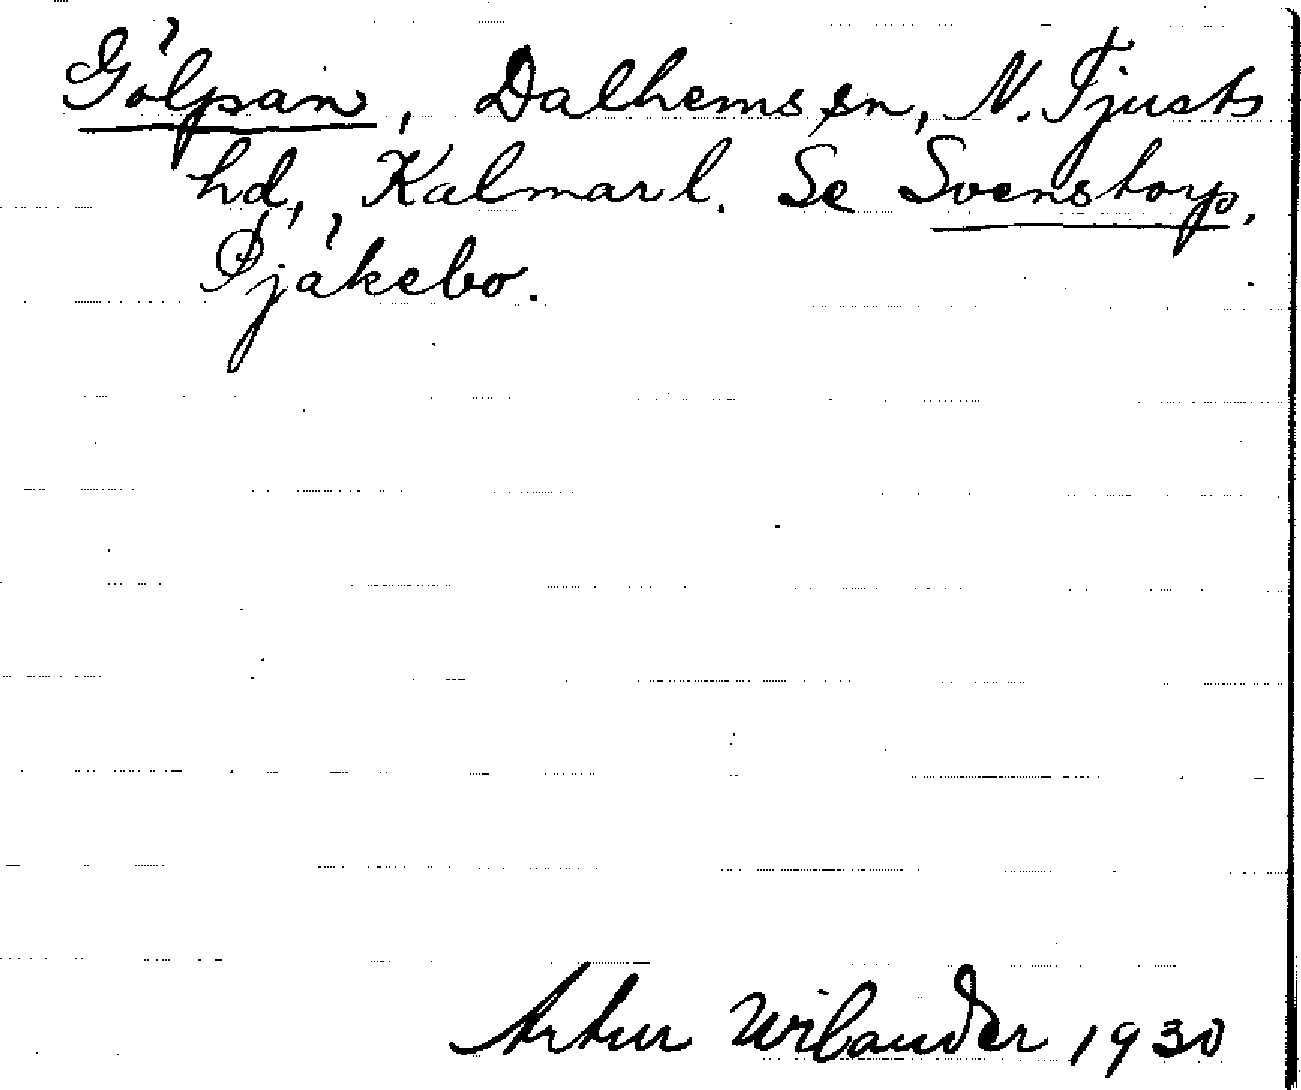 Gölpan, Dalhems sn, N. Tjusts
hd, Kalmar l. Se Svenstorp,
Artur Wilander 1930